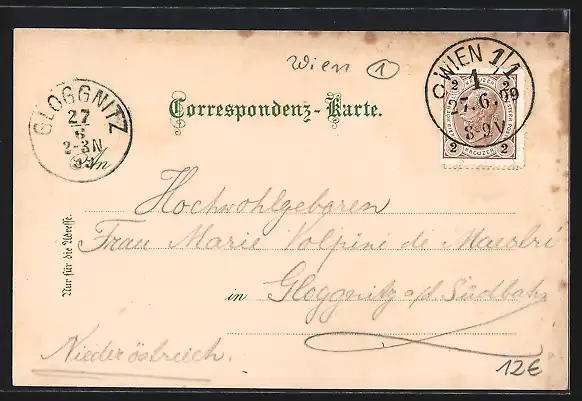 Wien 1
WIEN 1/1
1
27.6.99
8-9V
2 KREUZER 2
GLOGGNITZ
27
6
2-3N
99
Correspondenz-Karte.
An
Hochwohlgeboren
Frau Marie Volpini de Maestri
in Gloggnitz a/d Südbahn
Niederöstreich.
Nur für die Adresse.
12€